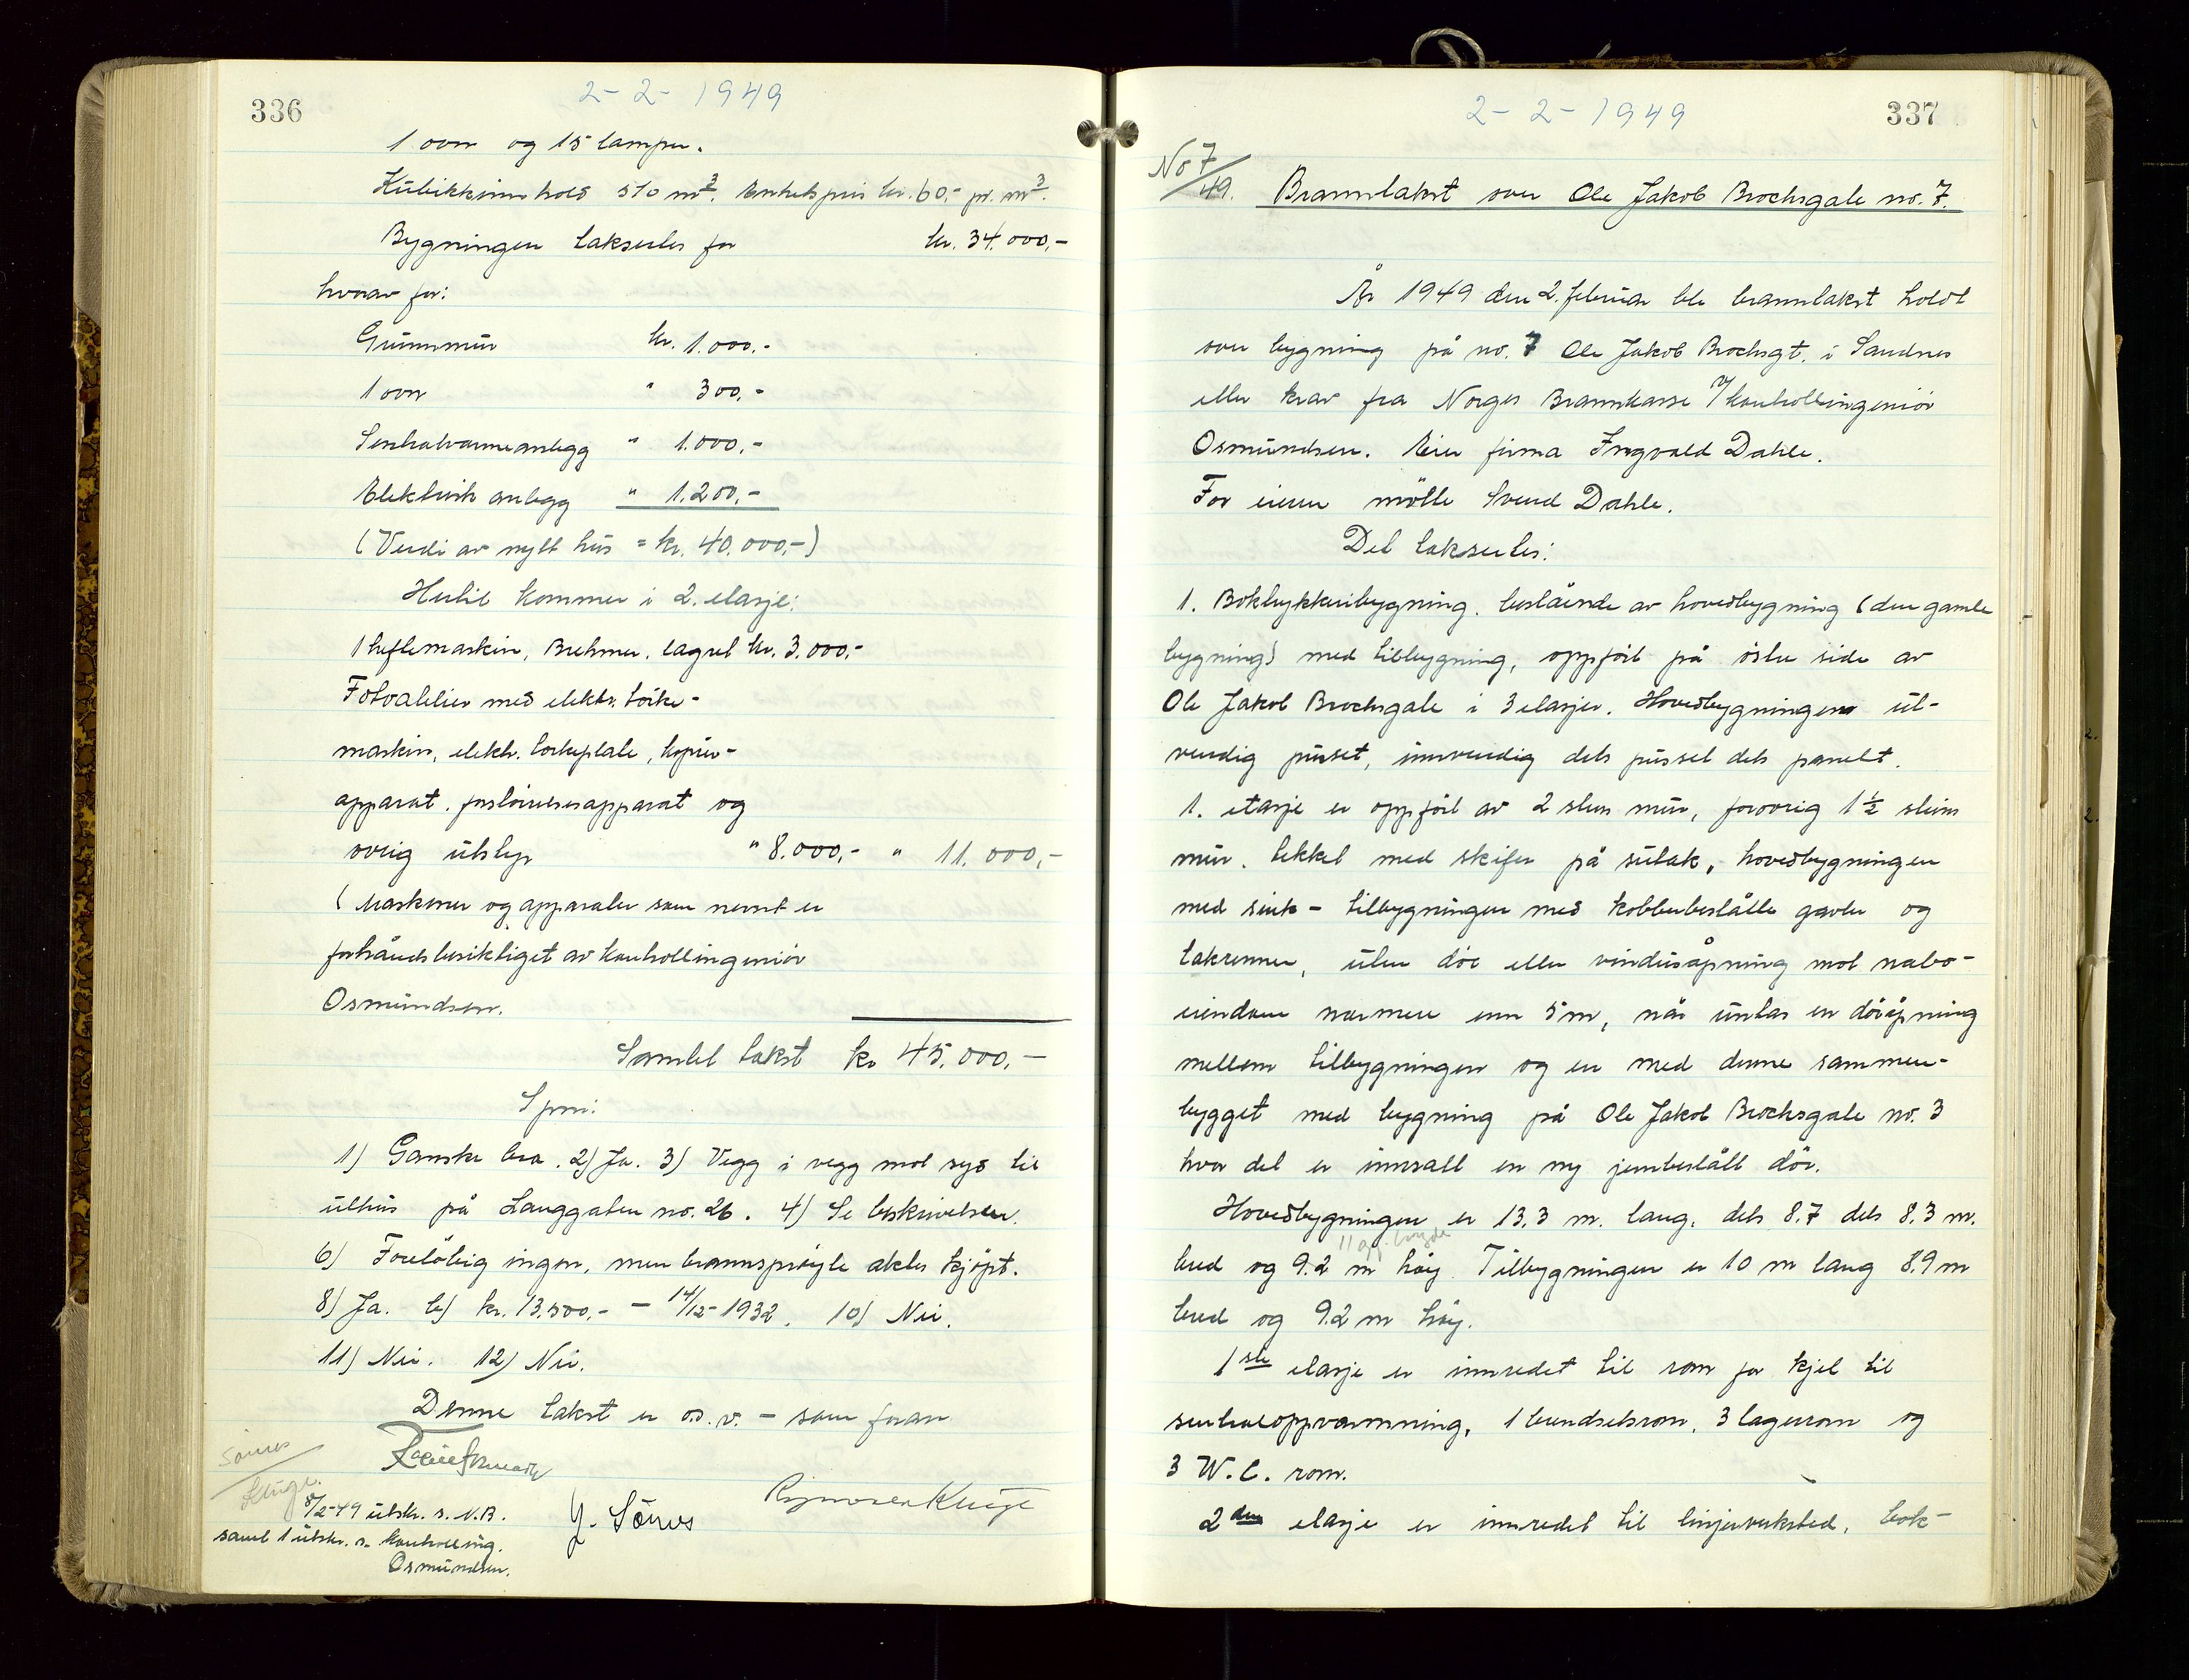 336
2-2-1949
1 ovn og 15 lamper.
Kubikkinnhold 570 m³. Enhetspris kr. 60,- pr. m³.
Bygningen takseertes for kr. 34.000,-
hvorav for:
Grunnmur kr. 1.000,-
1 ovn " 300,-
Sentralvarmeanlegg " 1.000,-
Elektrisk anlegg " 1.200,-
(Verdi av nytt hus = kr. 40.000,-)
Hertil kommer i 2. etasje:
1 heftemaskin, Brehmer. lagret kr. 3.000,-
Fotoatelier med elektr. törke-
maskin, elektr. törkeplate, kopier-
apparat, forstörrelsesapparat og
övrig utstyr " 8.000,- " 11.000,-
(Maskiner og apparater som nevnt er
forhåndsbesiktiget av kontrollingeniör
Osmundsen.
Samlet takst kr 45.000,-
Spm:
1) Ganske bra. 2) Ja. 3) Vegg i vegg mot syd til
uthus på Langgaten no. 26. 4) Se beskrivelsen.
6) Forelöbig ingen, men brannspröyte aktes kjöpt.
8) Ja. b) kr. 13.500,- - 14/12-1932. 10) Nei.
11) Nei. 12) Nei.
Denne takst er o.s.v. - som foran
Sömes
Kluge.
8/2-49 utskr. s. N.B.
samt 1 utskr. s. kontrolling.
Osmundsen.
J. Sömes
Kluge
2-2-1949
337
No 7/49. Branntakst over Ole Jakob Brochsgate no. 7.
År 1949 den 2. februar ble branntakst holdt
over bygning på no. 7 Ole Jakob Brochsgt. i Sandnes
etter krav fra Norges Brannkasse v/ kontrollingeniör
Osmundsen. Eier firma Ingvald Dahle.
For eieren mötte Svend Dahle.
Det takseertes:
1. Boktrykkeribygning. bestående av hovedbygning (den gamle
bygning) med tilbygning, oppfört på östre side av
Ole Jakob Brochsgate i 3 etasjer. Hovedbygningen ut-
vendig pusset, innvendig dels pusset dels panelt.
1. etasje er oppfört av 2 stens mur, forövrig 1½ stens
mur. tekket med skifer på sutak, hovedbygningen
med sink - tilbygningen med kobberbeslåtte gavler og
takrenner, uten dör eller vindusåpning mot nabo-
eiendom nærmere enn 5 m, når untas en döråpning
mellom tilbygningen og en med denne sammen-
bygget med bygning på Ole Jakob Brochsgate no. 3
hvor det er innsatt en ny jernbeslått dör.
Hovedbygningen er 13,3 m. lang, dels 8.7 dels 8,3 m.
bred og 9.2 m höy. Tilbygningen er 10 m lang 8.9 m
bred og 9.2 m höy.
1ste etasje er innredet til rom for kjel til
sentraloppvarmning, 1 brendselsrom, 3 lagerrom og
3 W.C. rom.
2den etasje er innredet til linjeverksted, bok-